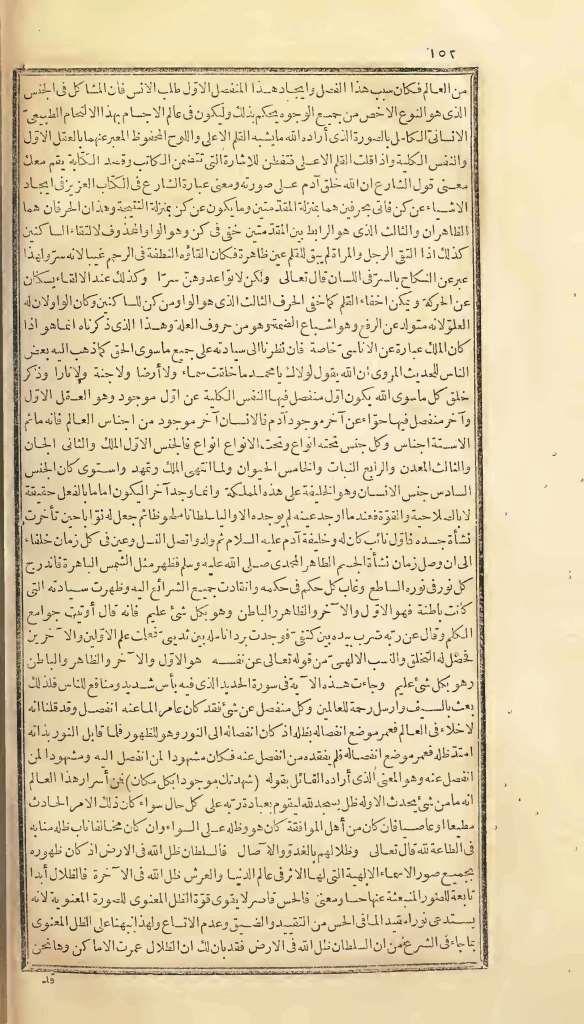 ١٥٢
من العالم فكان سبب هذا الفصل وايجاد هذا المنفصل الاول طلب الانس فان المشاكل فى الجنس
الذى هو النوع الاخص من جميع الوجوه يحكم بذلك وليكون فى عالم الاجسام بهذا الالتحام الطبيعى
الانسانى الكامل بالصورة الذى أراده الله ما يشبه القلم الاعلى واللوح المحفوظ المعبر عنهما بالعقل الاول
والنفس الكلية واذا قلت القلم الاعلى فتفطن للاشارة التى تتضمن الكاتب وقصد الكتابة يقم معك
معنى قول الشارع ان الله خلق آدم على صورته ومعنى عبارة الشارع فى الكتاب العزيز فى ايجاد
الاشياء عن كن فأتى بحرفين هما بمنزلة المقدمتين وما يكون عن كن بمنزلة النتيجة وهذان الحرفان هما
الظاهران والثالث الذى هو الرابط بين المقدمتين خفى فى كن وهو الواو المحذوف لالتقاء الساكنين
كذلك اذا التقى الرجل والمرأة لم يبق للقلم عين ظاهرة فكان القاؤه النطفة فى الرحم غيبا لانه سر ولهذا
عبر عن النكاح بالسر فى اللسان قال تعالى ولكن لا تواعدوهن سرا وكذلك عند الالقاء يسكنان
عن الحركة ويمكن اخفاء القلم كما خفى الحرف الثالث الذى هو الواو من كن للساكنين وكان الواو لان له
العلو لانه متولد عن الرفع وهو اشباع الضمة وهو من حروف العلة وهذا الذى ذكرناه انما هو اذا
كان الملك عبارة عن الاناسى خاصة فان نظرنا الى سيادته على جميع ما سوى الحق كما ذهب اليه بعض
الناس للحديث المروى ان الله يقول لولاك يا محمد ما خلقت سماء ولا أرضا ولا جنة ولا نارا وذكر
خلق كل ما سوى الله يكون أول منفصل فيها النفس الكلية عن أول موجود وهو العقل الاول
وآخر منفصل فيها حواء عن آخر موجود آدم فالانسان آخر موجود من اجناس العالم فانه ما ثم
الا ستة اجناس وكل جنس تحته انواع وتحت الانواع انواع فالجنس الاول الملك والثانى الجان
والثالث المعدن والرابع النبات والخامس الحيوان ولما انتهى الملك وتمهد واستوى كان الجنس
السادس جنس الانسان وهو الخليفة على هذه المملكة وانما وجد آخرا ليكون اماما بالفعل حقيقة
لا بالصلاحية والقوة فعندما أوجد عينه لم يوجده الا واليا سلطانا ملحوظا ثم جعل له نوابا حين تأخرت
نشأة جسده فأول نائب كان له وخليفة آدم عليه السلام ثم ولد واتصل النسل وعين فى كل زمان خلفاء
الى ان وصل زمان نشأة الجسم الطاهر المحمدى صلى الله عليه وسلم فظهر مثل الشمس الباهرة فاندرج
كل نور فى نوره الساطع وغاب كل حكم فى حكمه وانقادت جميع الشرائع اليه وظهرت سيادته التى
كانت باطنة فهو الاول والآخر والظاهر والباطن وهو بكل شئ عليم فانه قال أوتيت جوامع
الكلم وقال عن ربه ضرب بيده بين كتفى فوجدت برد أنامله بين ثديى فعلمت علم الاولين والآخرين
فحصل له التخلق والنسب الالهى من قوله تعالى عن نفسه هو الاول والآخر والظاهر والباطن
وهو بكل شئ عليم وجاءت هذه الآية فى سورة الحديد الذى فيه بأس شديد ومنافع للناس فلذلك
بعث بالسيف وارسل رحمة للعالمين وكل منفصل عن شئ فقد كان عامرا لما عنه انفصل وقد قلنا انه
لا خلاء فى العالم فعمر موضع انفصاله بظله اذ كان انفصاله الى النور وهو للظهور فلما قابل النور بذاته
امتد ظله فعمر موضع انفصاله فلم يفقده من انفصل عنه فكان مشهودا لمن انفصل اليه ومشهودا لمن
انفصل عنه وهو المعنى الذى أراده القائل بقوله (شهدتك موجودا بكل مكان) فمن أسرار هذا العالم
انه ما من شئ يحدث الا وله ظل يسجد لله ليقوم بعبادة ربه على كل حال سواء كان ذلك الامر الحادث
مطيعا أو عاصيا فان كان من أهل الموافقة كان هو وظله على السواء وان كان مخالفا ناب ظله منابه
فى الطاعة لله قال تعالى وظلالهم بالغدو والآصال فالسلطان ظل الله فى الارض اذ كان ظهوره
بجميع صور الاسماء الالهية التى لها الاثر فى عالم الدنيا والعرش ظل الله فى الآخرة فالظلال أبدا
تابعة للصور المنبعثة عنها حسا ومعنى فالحس قاصر لا يقوى قوة الظل المعنوى للصورة المعنوية لانه
يستدعى نورا مقيدا لما فى الحس من التقييد والضيق وعدم الاتساع ولهذا نبهنا على الظل المعنوى
بما جاء فى الشرع من ان السلطان ظل الله فى الارض فقد بان لك ان الظلال عمرت الاماكن وها نحن